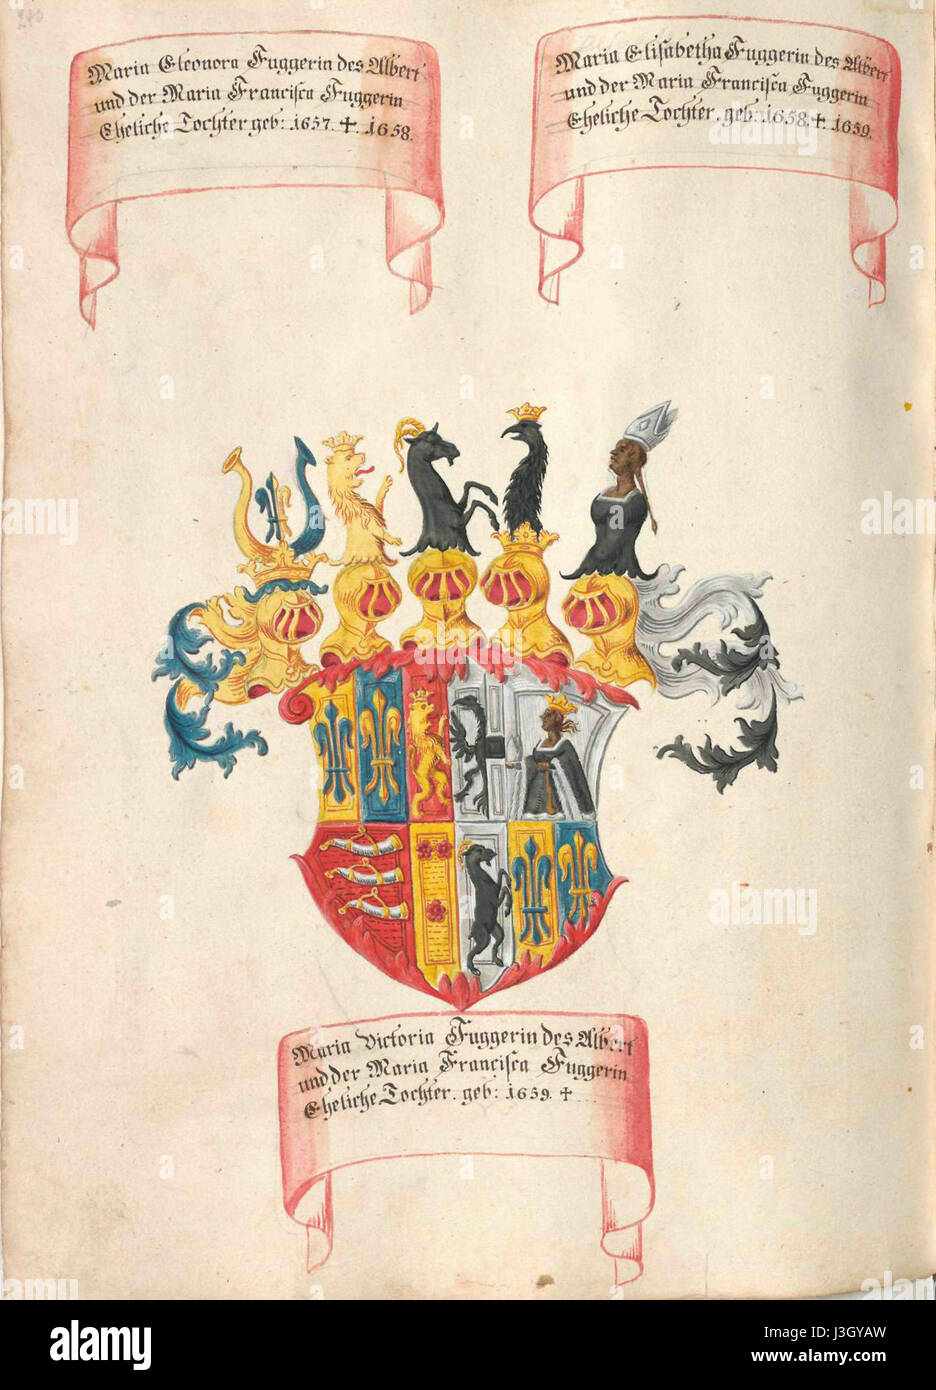 Maria Eleonora Fuggerin des Albert
und der Maria Francisca Fuggerin
Eheliche Tochter geb: 1657. ✝. 1658.
Maria Elisabetha Fuggerin des Albert
und der Maria Francisca Fuggerin
Eheliche Tochter. geb: 1658. ✝. 1659.
Maria Victoria Fuggerin des Albert
und der Maria Francisca Fuggerin
Eheliche Tochter. geb: 1659. ✝
alamy stock photo
alamy
a
a
a
a
alamy
Image ID: J3GYAW
www.alamy.com